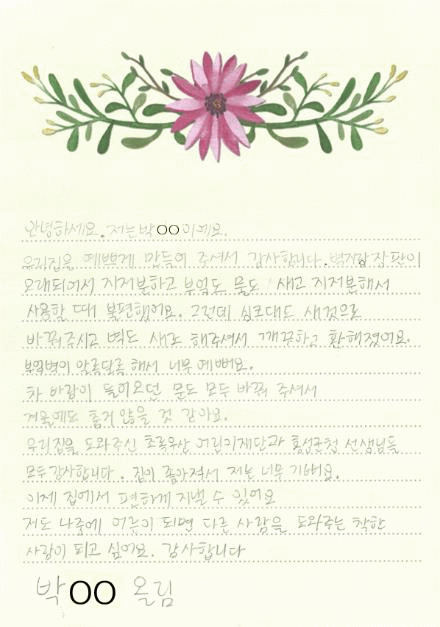 안녕하세요. 저는 박OO이에요.
우리집을 예쁘게 만들어 주셔서 감사합니다. 벽지랑 장판이
오래되어서 지저분하고 부엌도 물도 새고 지저분해서
사용할 때 불편했어요. 그런데 싱크대도 새것으로
바꿔주시고 벽도 새로 해주셔서 깨끗하고 환해졌어요.
부엌벽이 알록달록 해서 너무 예뻐요.
차 바람이 들어오던 문도 모두 바꿔 주셔서
겨울에도 춥지 않을 것 같아요.
우리집을 도와주신 초록우산 어린이재단과 홍성군청 선생님들
모두 감사합니다. 집이 좋아져서 저는 너무 기뻐요.
이제 집에서 편하게 지낼 수 있어요
저도 나중에 어른이 되면 다른 사람을 도와주는 착한
사람이 되고 싶어요. 감사합니다
박OO 올림